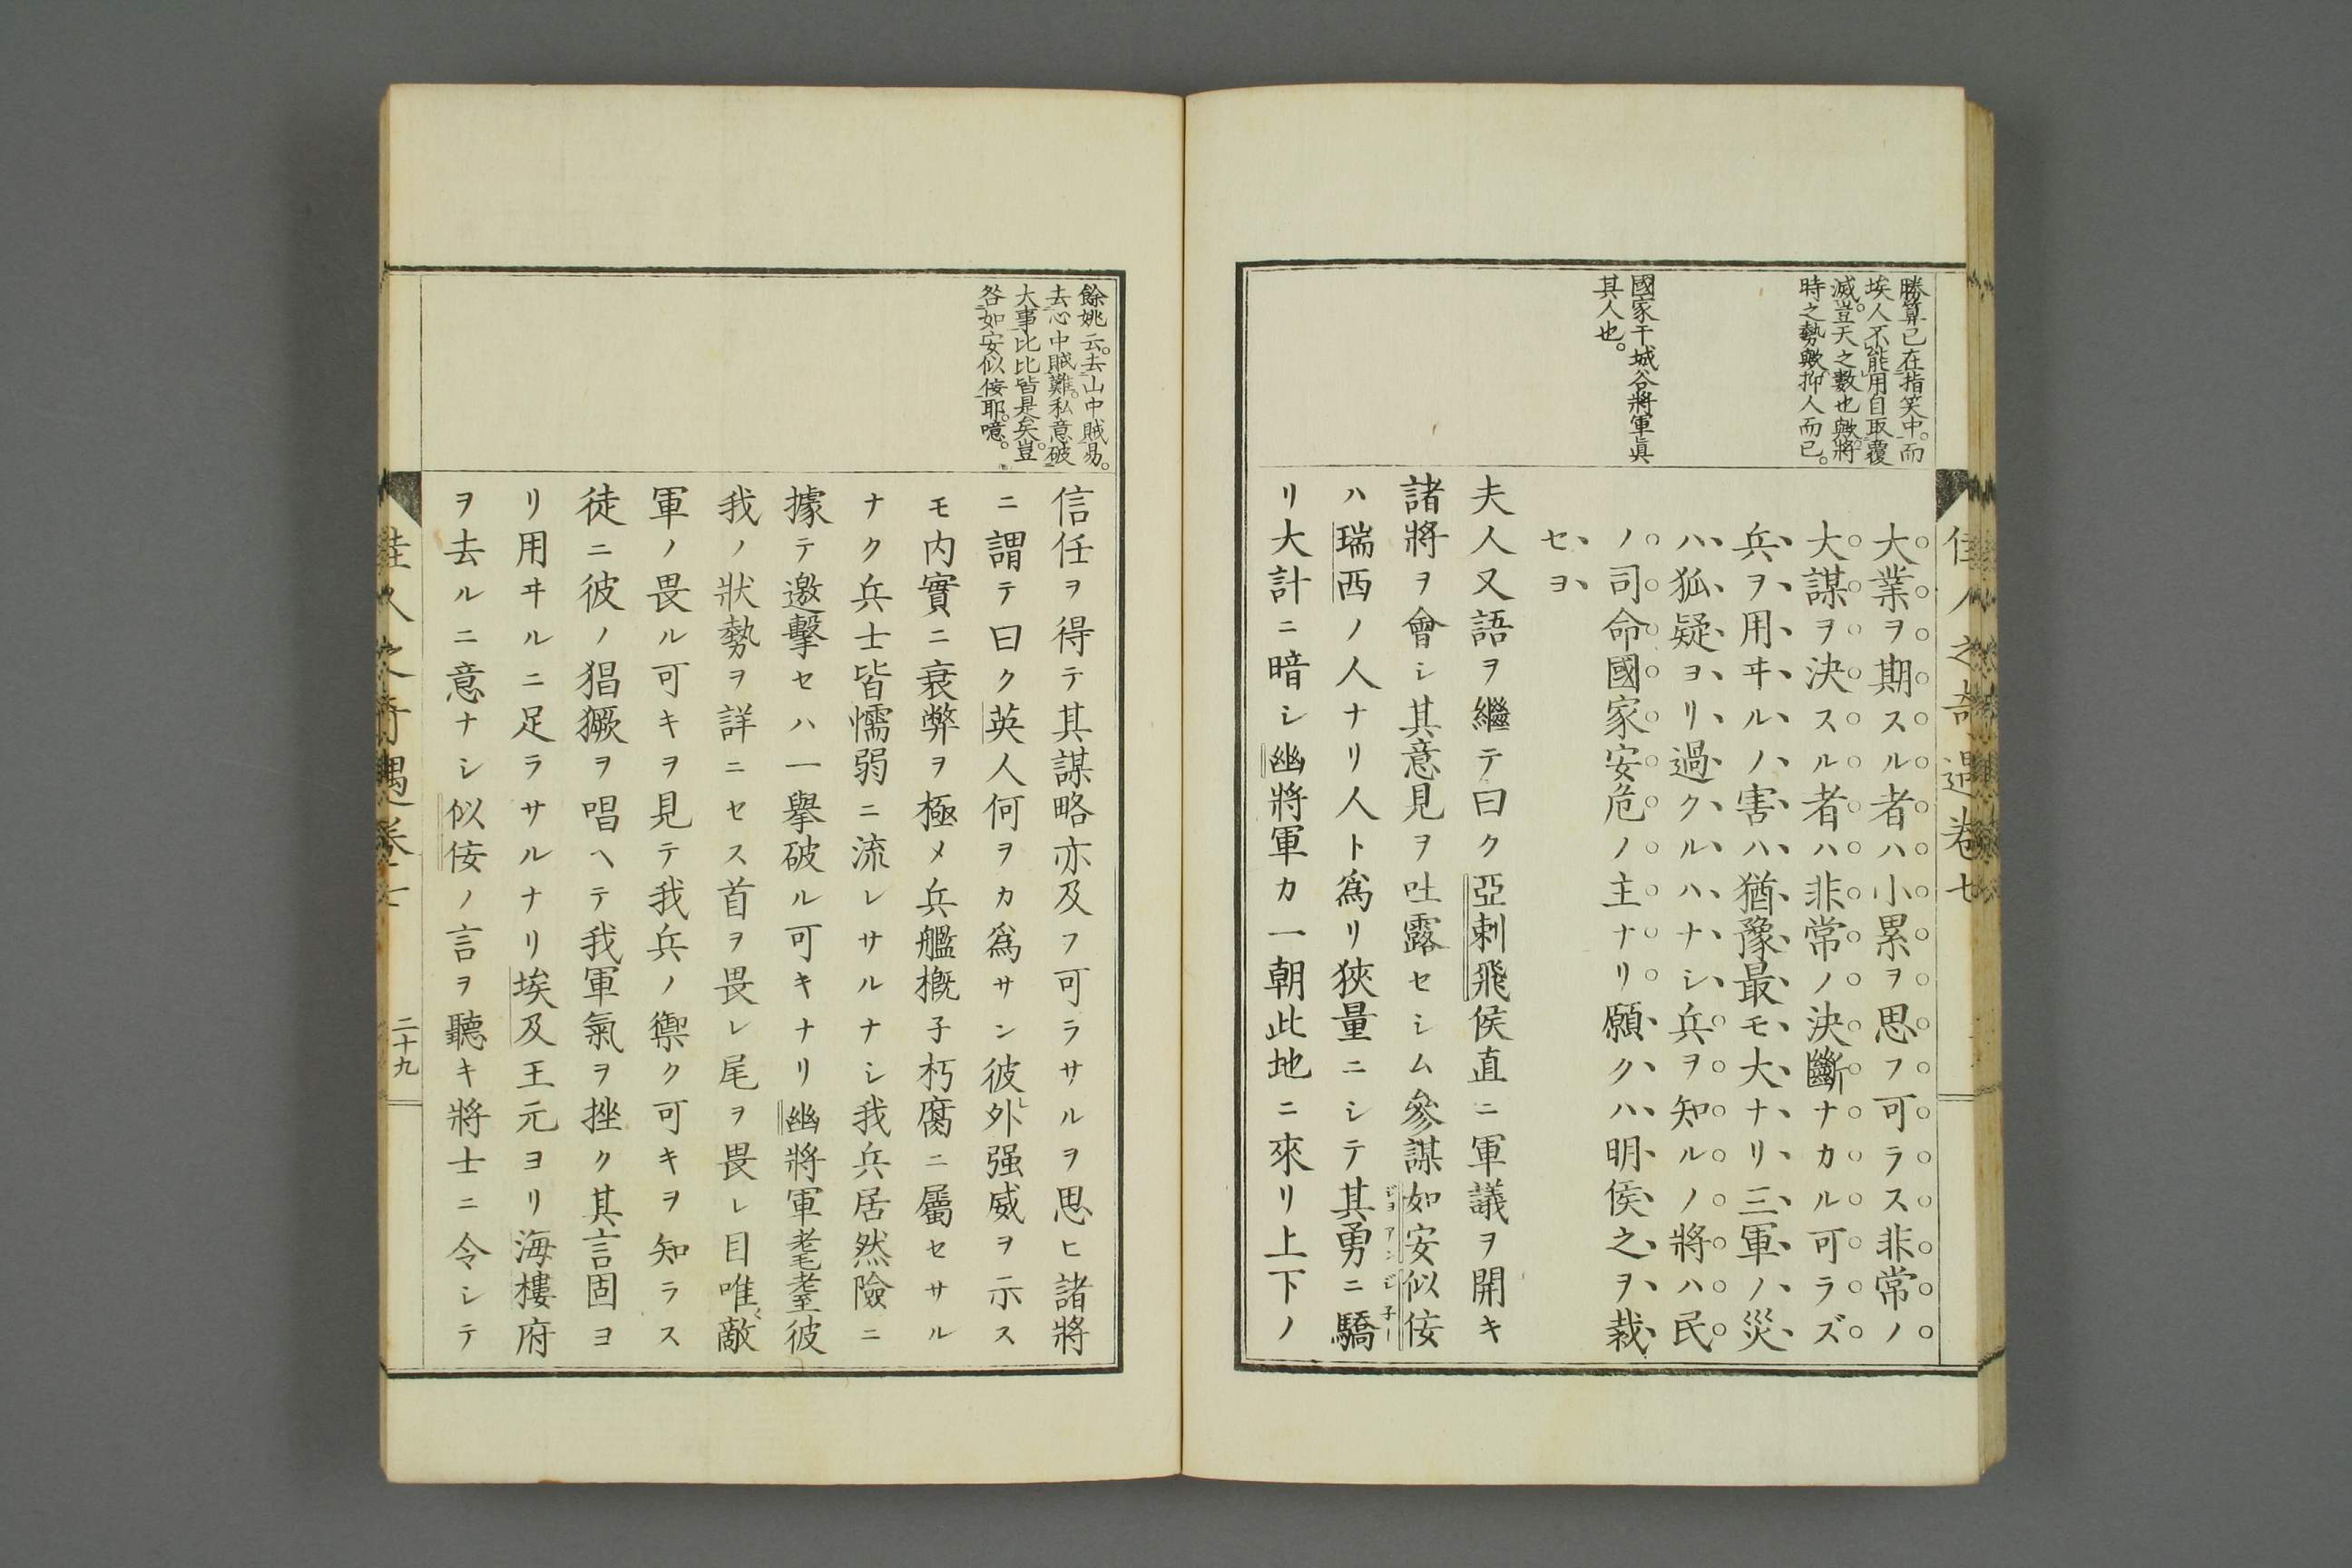 佳人之奇遇卷七
勝算已在指笑中。而
埃人不能用自取覆
滅。豈天之數也歟。將
時之勢歟抑人而已。
國家干城谷將軍眞
其人也。
大業ヲ期スル者ハ小累ヲ思フ可ラス非常ノ
大謀ヲ決スル者ハ非常ノ決斷ナカル可ラズ
兵ヲ用ヰルノ害ハ猶豫最モ大ナリ三軍ノ災
ハ狐疑ヨリ過クルハナシ兵ヲ知ルノ將ハ民
ノ司命國家安危ノ主ナリ願クハ明侯之ヲ裁
セヨ
夫人又語ヲ繼テ曰ク亞剌飛侯直ニ軍議ヲ開キ
諸將ヲ會シ其意見ヲ吐露セシム參謀如安似侒
ハ瑞西ノ人ナリ人ト爲リ狹量ニシテ其勇ニ驕
リ大計ニ暗シ幽將軍カ一朝此地ニ來リ上下ノ
餘姚云。去山中賊易。
去心中賊難。私意破
大事比比皆是矣。豈
咎如安似侒耶。噫。
信任ヲ得テ其謀略亦及フ可ラサルヲ思ヒ諸將
ニ謂テ曰ク英人何ヲカ爲サン彼レ外强威ヲ示ス
モ内實ニ衰弊ヲ極メ兵艦概子朽腐ニ屬セサル
ナク兵士皆懦弱ニ流レサルナシ我兵居然險ニ
據テ邀擊セハ一擧破ル可キナリ幽將軍耄耋彼
我ノ狀勢ヲ詳ニセス首ヲ畏レ尾ヲ畏レ目唯敵
軍ノ畏ル可キヲ見テ我兵ノ禦ク可キヲ知ラス
徒ニ彼ノ猖獗ヲ唱ヘテ我軍氣ヲ挫ク其言固ヨ
リ用ヰルニ足ラサルナリ埃及王元ヨリ海樓府
ヲ去ルニ意ナシ似侒ノ言ヲ聽キ將士ニ令シテ
佳人之奇遇卷七
二十九